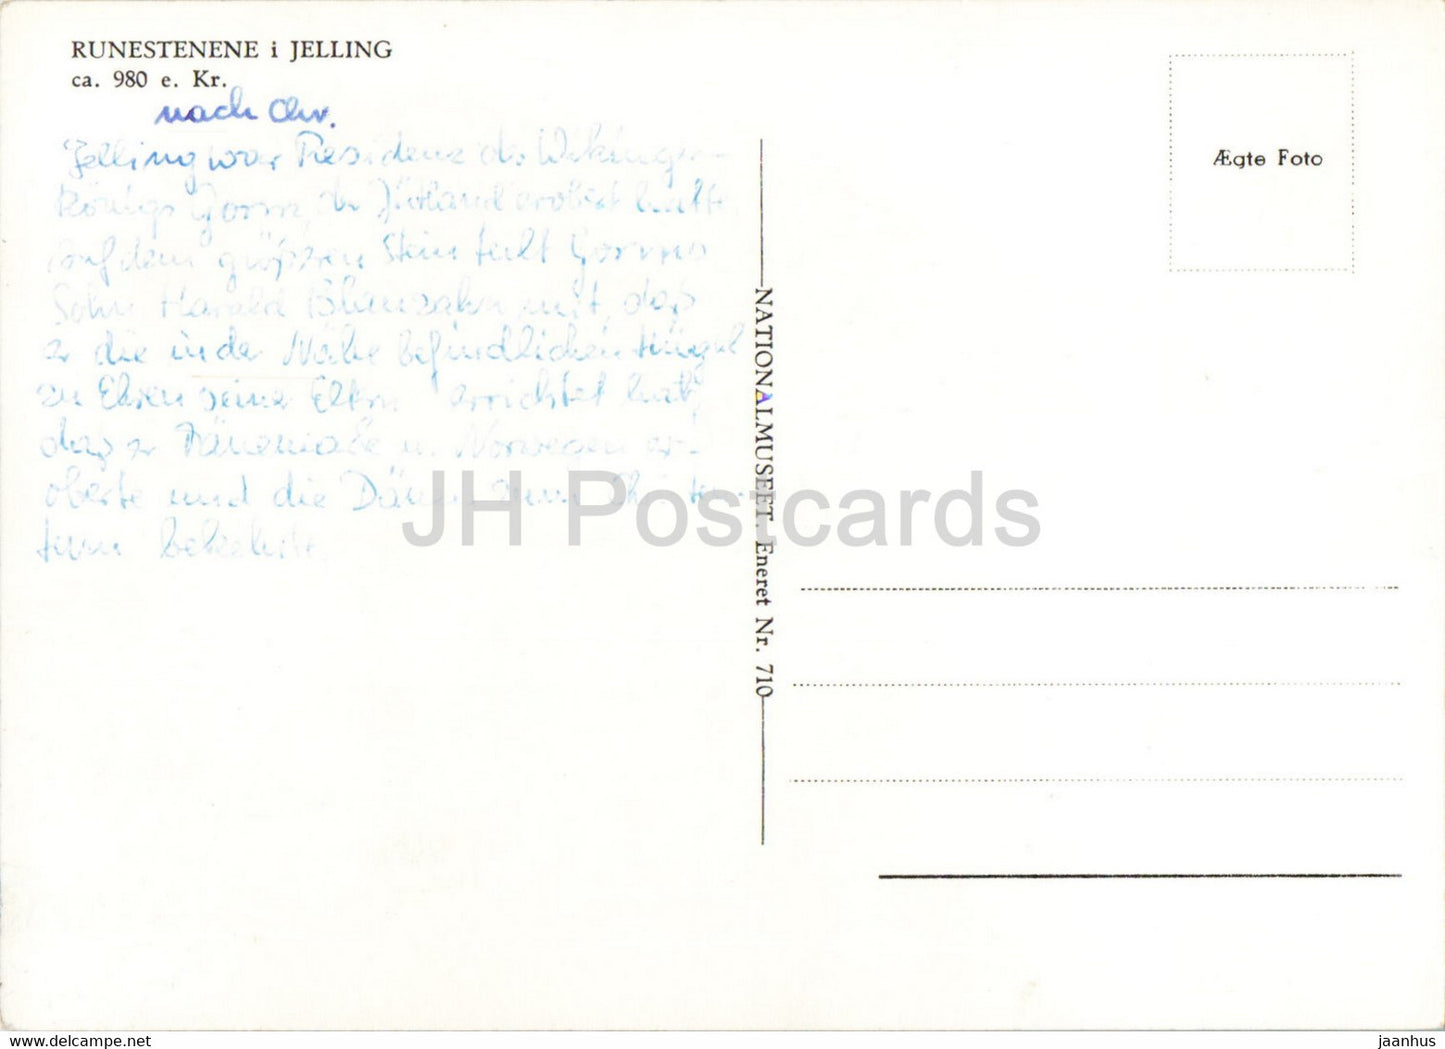 RUNESTENENE i JELLING
ca. 980 e. Kr.
nach Chr.
Jelling war Residenz des Wikinger-
königs Gorm, der Jütland erobert hatte,
auf dem größeren Stein teilt Gorms
Sohn Harald Blauzahn mit, daß
er die in der Nähe befindlichen Hügel
zu Ehren seiner Eltern errichtet hat,
daß er Dänemark u. Norwegen er-
oberte und die Dänen zum Christen-
tum bekehrte.
Ægte Foto
NATIONALMUSEET. Eneret Nr. 710
JH Postcards
hippostcard.com
jaanhus